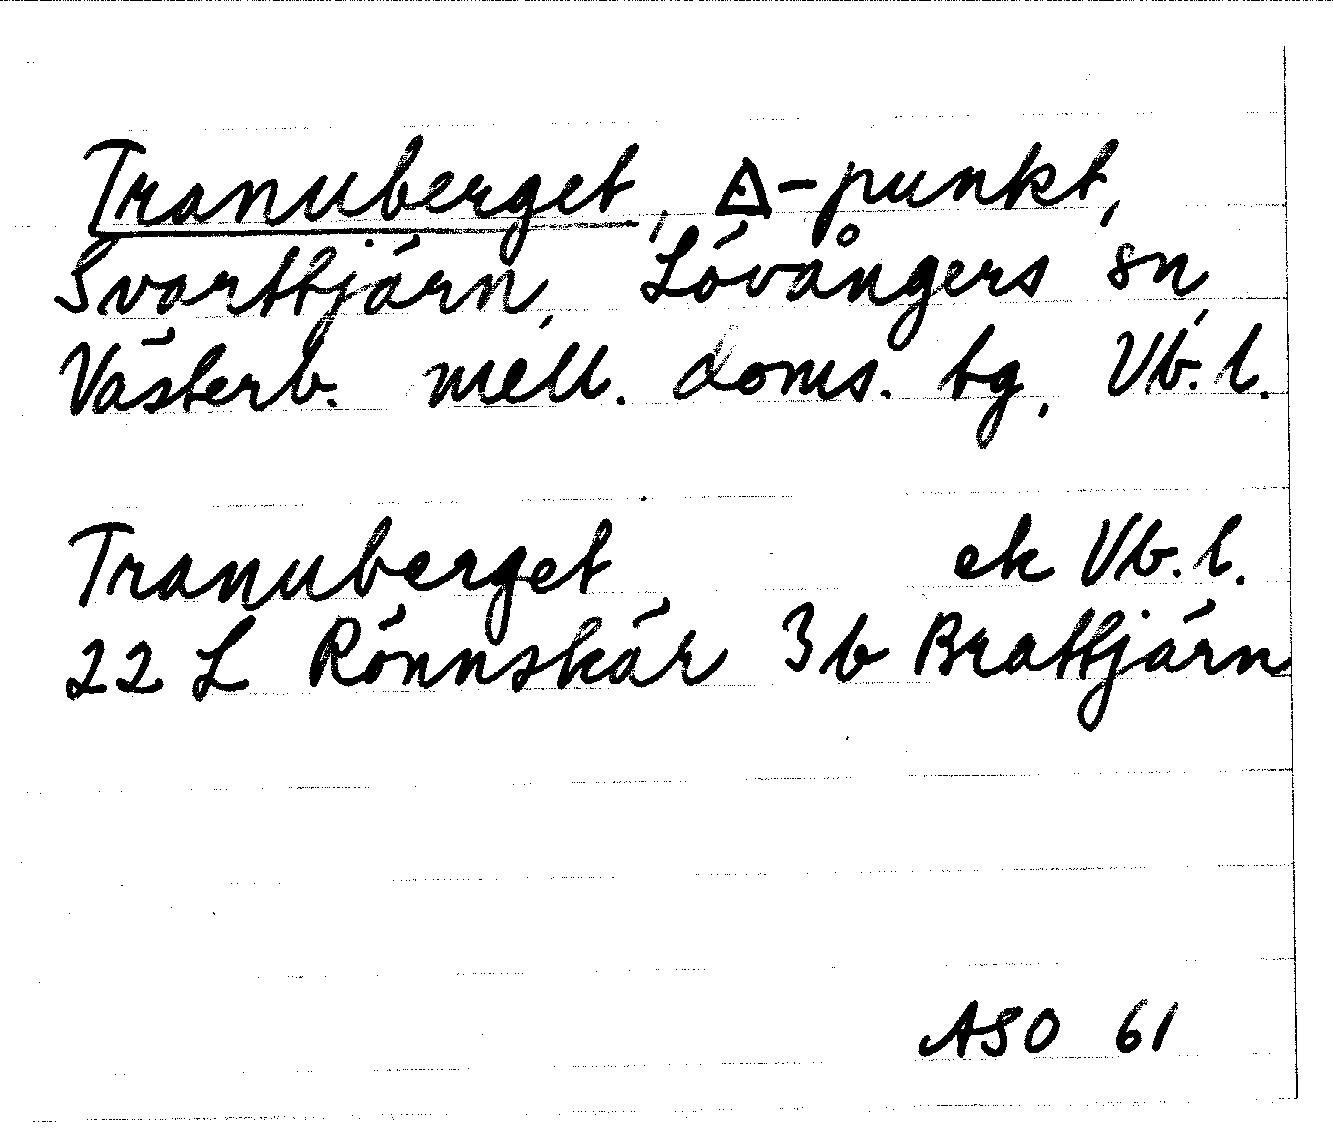 Tranuberget, ◬-punkt,
Svarttjärn, Lövångers sn,
Västerb. mell. doms. tg, Vb. l.
Tranuberget ek Vb. l.
22 L Rönnskär 3b Brattjärn
ASO 61